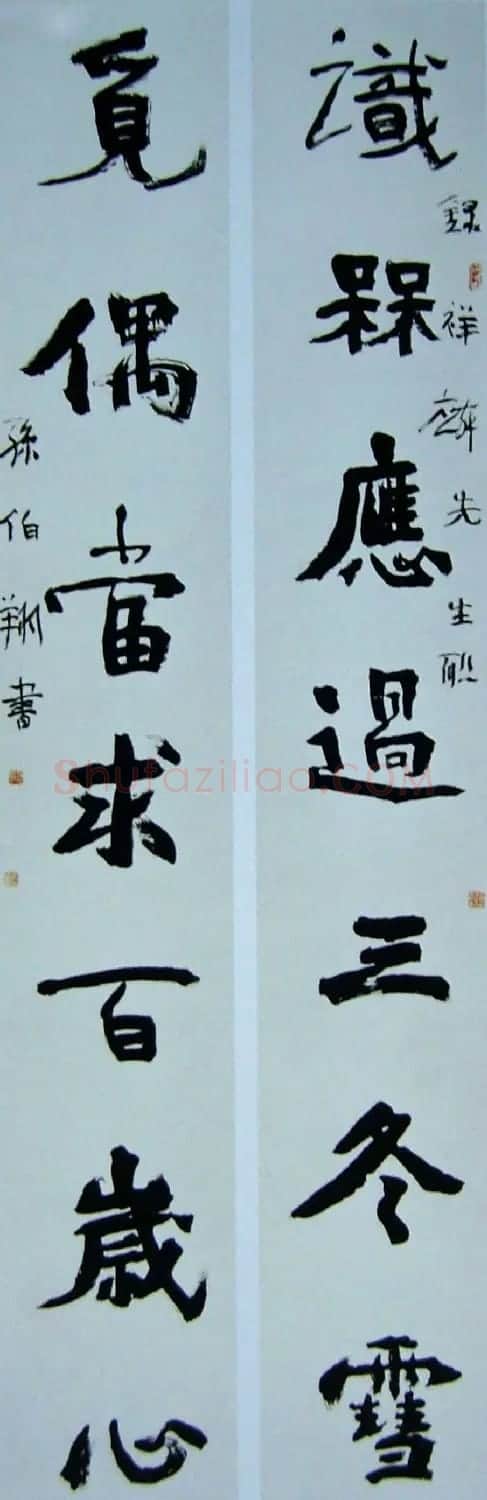 識槑應過三冬雪
録祥麟先生聯
覓偶當求百歲心
孫伯翔書
Shufaziliao.COM